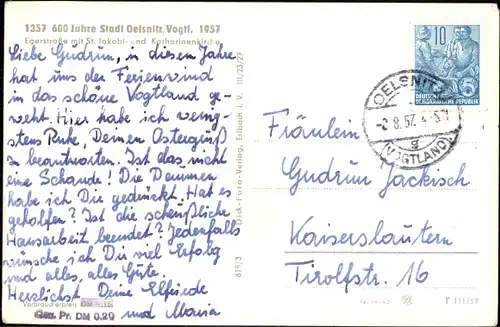 1357 600 Jahre Stadt Oelsnitz/Vogtl. 1957
Egerstraße mit St. Jakobi- und Katharinenkirche
Liebe Gudrun, in diesem Jahre
hat uns der Ferienwind
in das schöne Vogtland ge-
weht. Hier habe ich wenig-
stens Ruhe, Deinen Ostergruß
zu beantworten. Ist das nicht
eine Schande! Die Daumen
habe ich Dir gedrückt. Hat es
geholfen? Ist die scheußliche
Hausarbeit beendet? Jedenfalls
wünsche ich Dir viel Erfolg
und alles, alles Gute.
Herzlichst Deine Elfriede
und Maria
Verbraucherpreis DM
Gen. Pr. DM 0.20
Dick-Foto-Verlag, Erlbach i. V. III/23/27
10
DEUTSCHE
DEMOKRATISCHE REPUBLIK
OELSNITZ
-2.8.57
(VOGTLAND)
g
Fräulein
Gudrun Jackisch
Kaiserslautern
Tirolfstr. 16
T 111/57